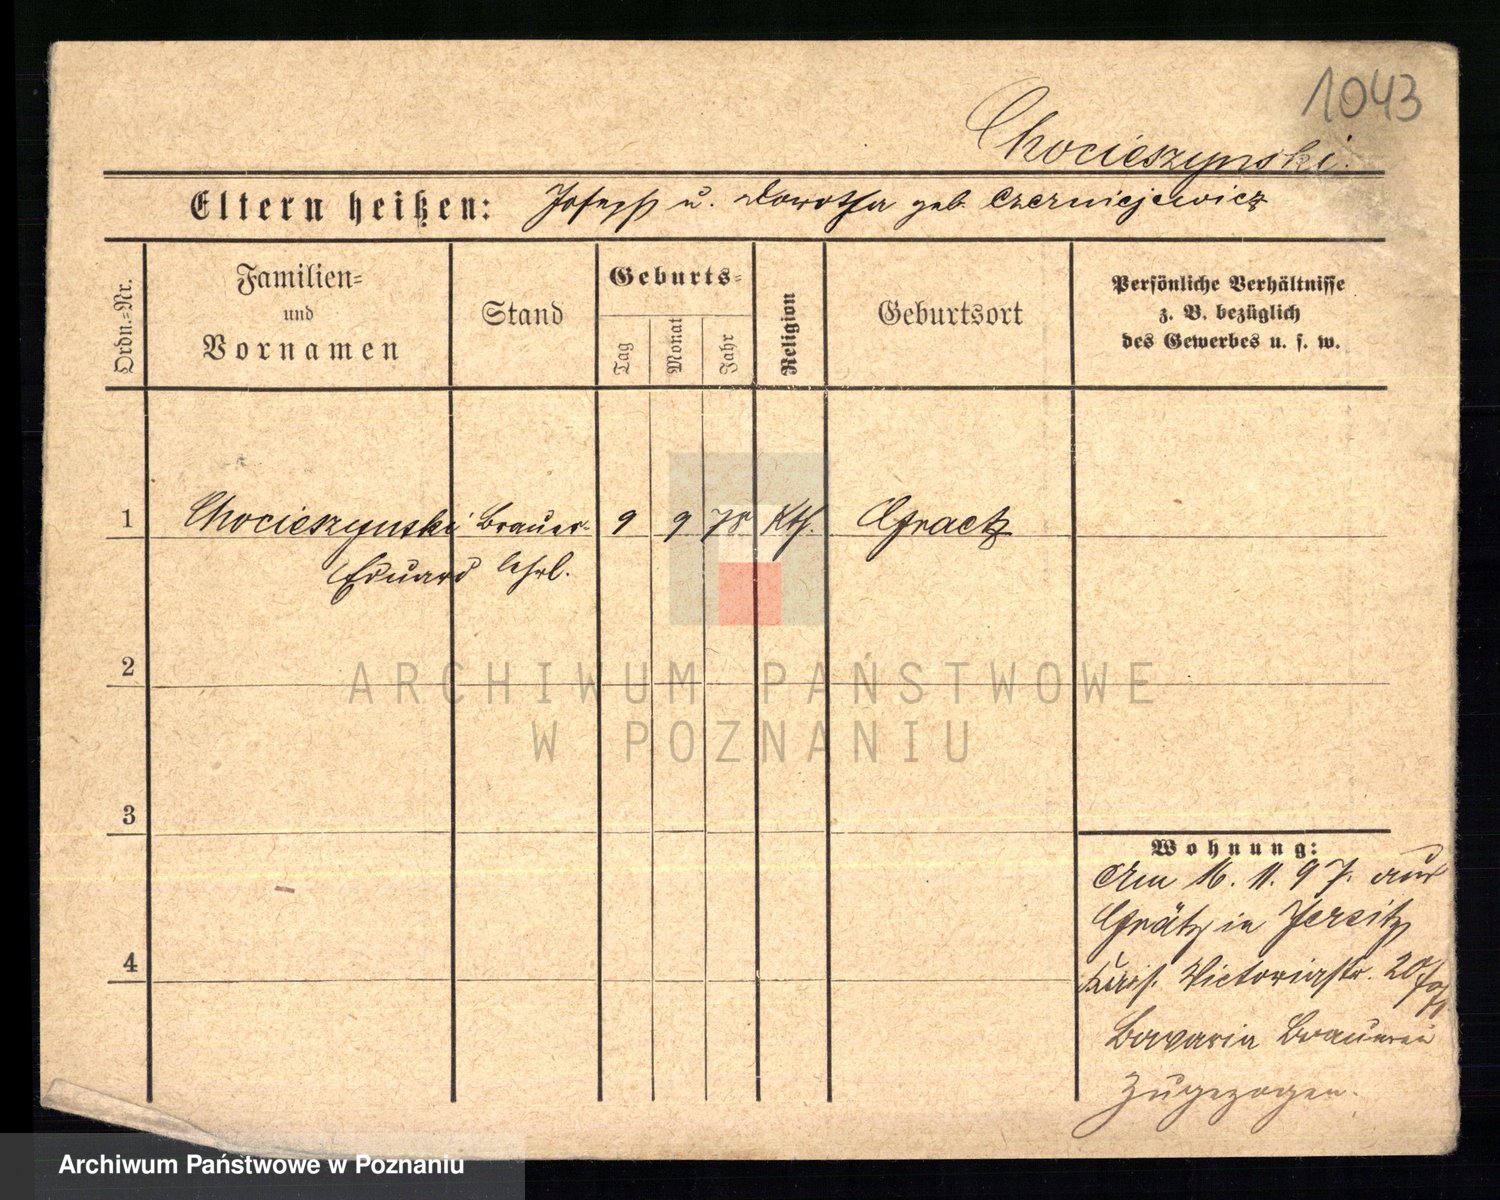 1043
Chocieszynski.
Eltern heißen: Joseph u. Dorothea geb. Czerniejewicz
Ordn.=Nr.
Familien=
und
Vornamen
Stand
Geburts=
Tag
Monat
Jahr
Religion
Geburtsort
Persönliche Verhältnisse
z. B. bezüglich
des Gewerbes u. s. w.
1 Chocieszynski Brauer- 9 9 78 Kth. Graetz
Eduard lehrl.
2
3
4
Wohnung:
Am 16. 11. 97. aus
Grätz in Jersitz
Kais. Victoriastr. 20
Bavaria Brauerei
zugezogen.
ARCHIWUM PAŃSTWOWE
W POZNANIU
Archiwum Państwowe w Poznaniu